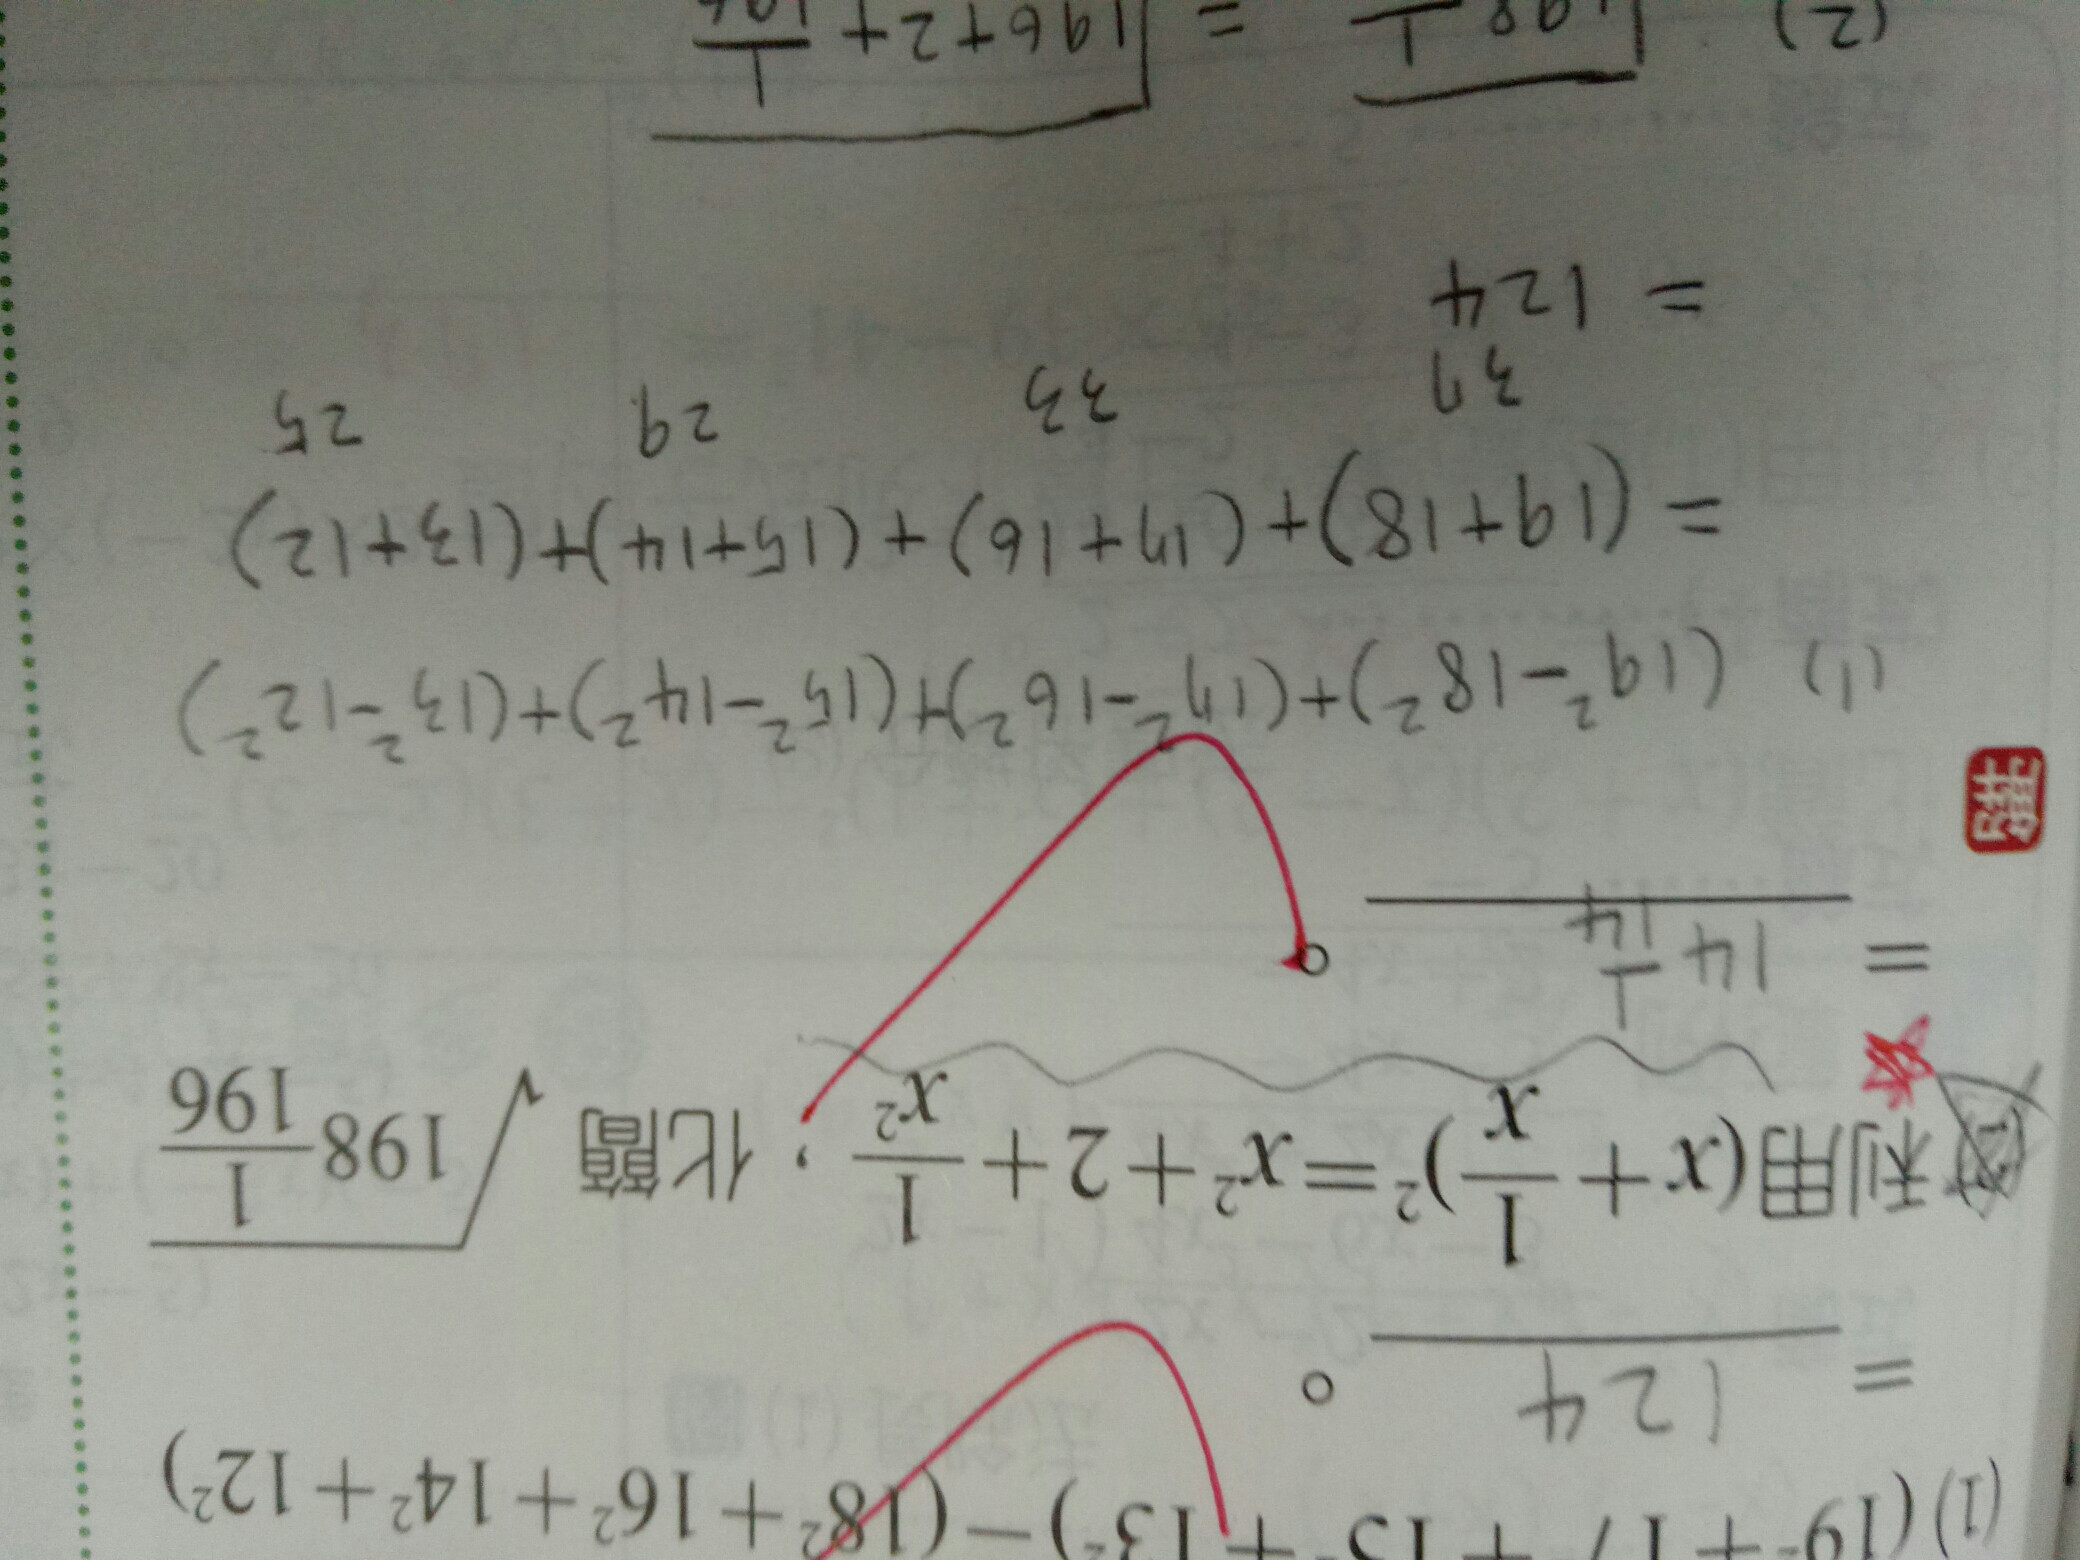 (1) (19²+17²+15²+13²)-(18²+16²+14²+12²)
= 124 。
(2) 利用(x+1/x)²=x²+2+1/x²，化簡 √(198 1/196)
= 14 1/14 。
(1) (19²-18²)+(17²-16²)+(15²-14²)+(13²-12²)
= (19+18)+(17+16)+(15+14)+(13+12)
37 33 29 25
= 124
(2) √(198 1/) = √(196+2+1/196)